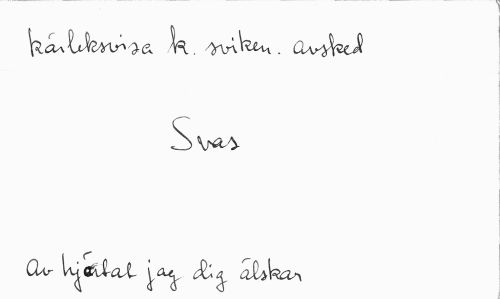 kärleksvisa k. sviken. avsked
Svas
Av hjärtat jag dig älskar